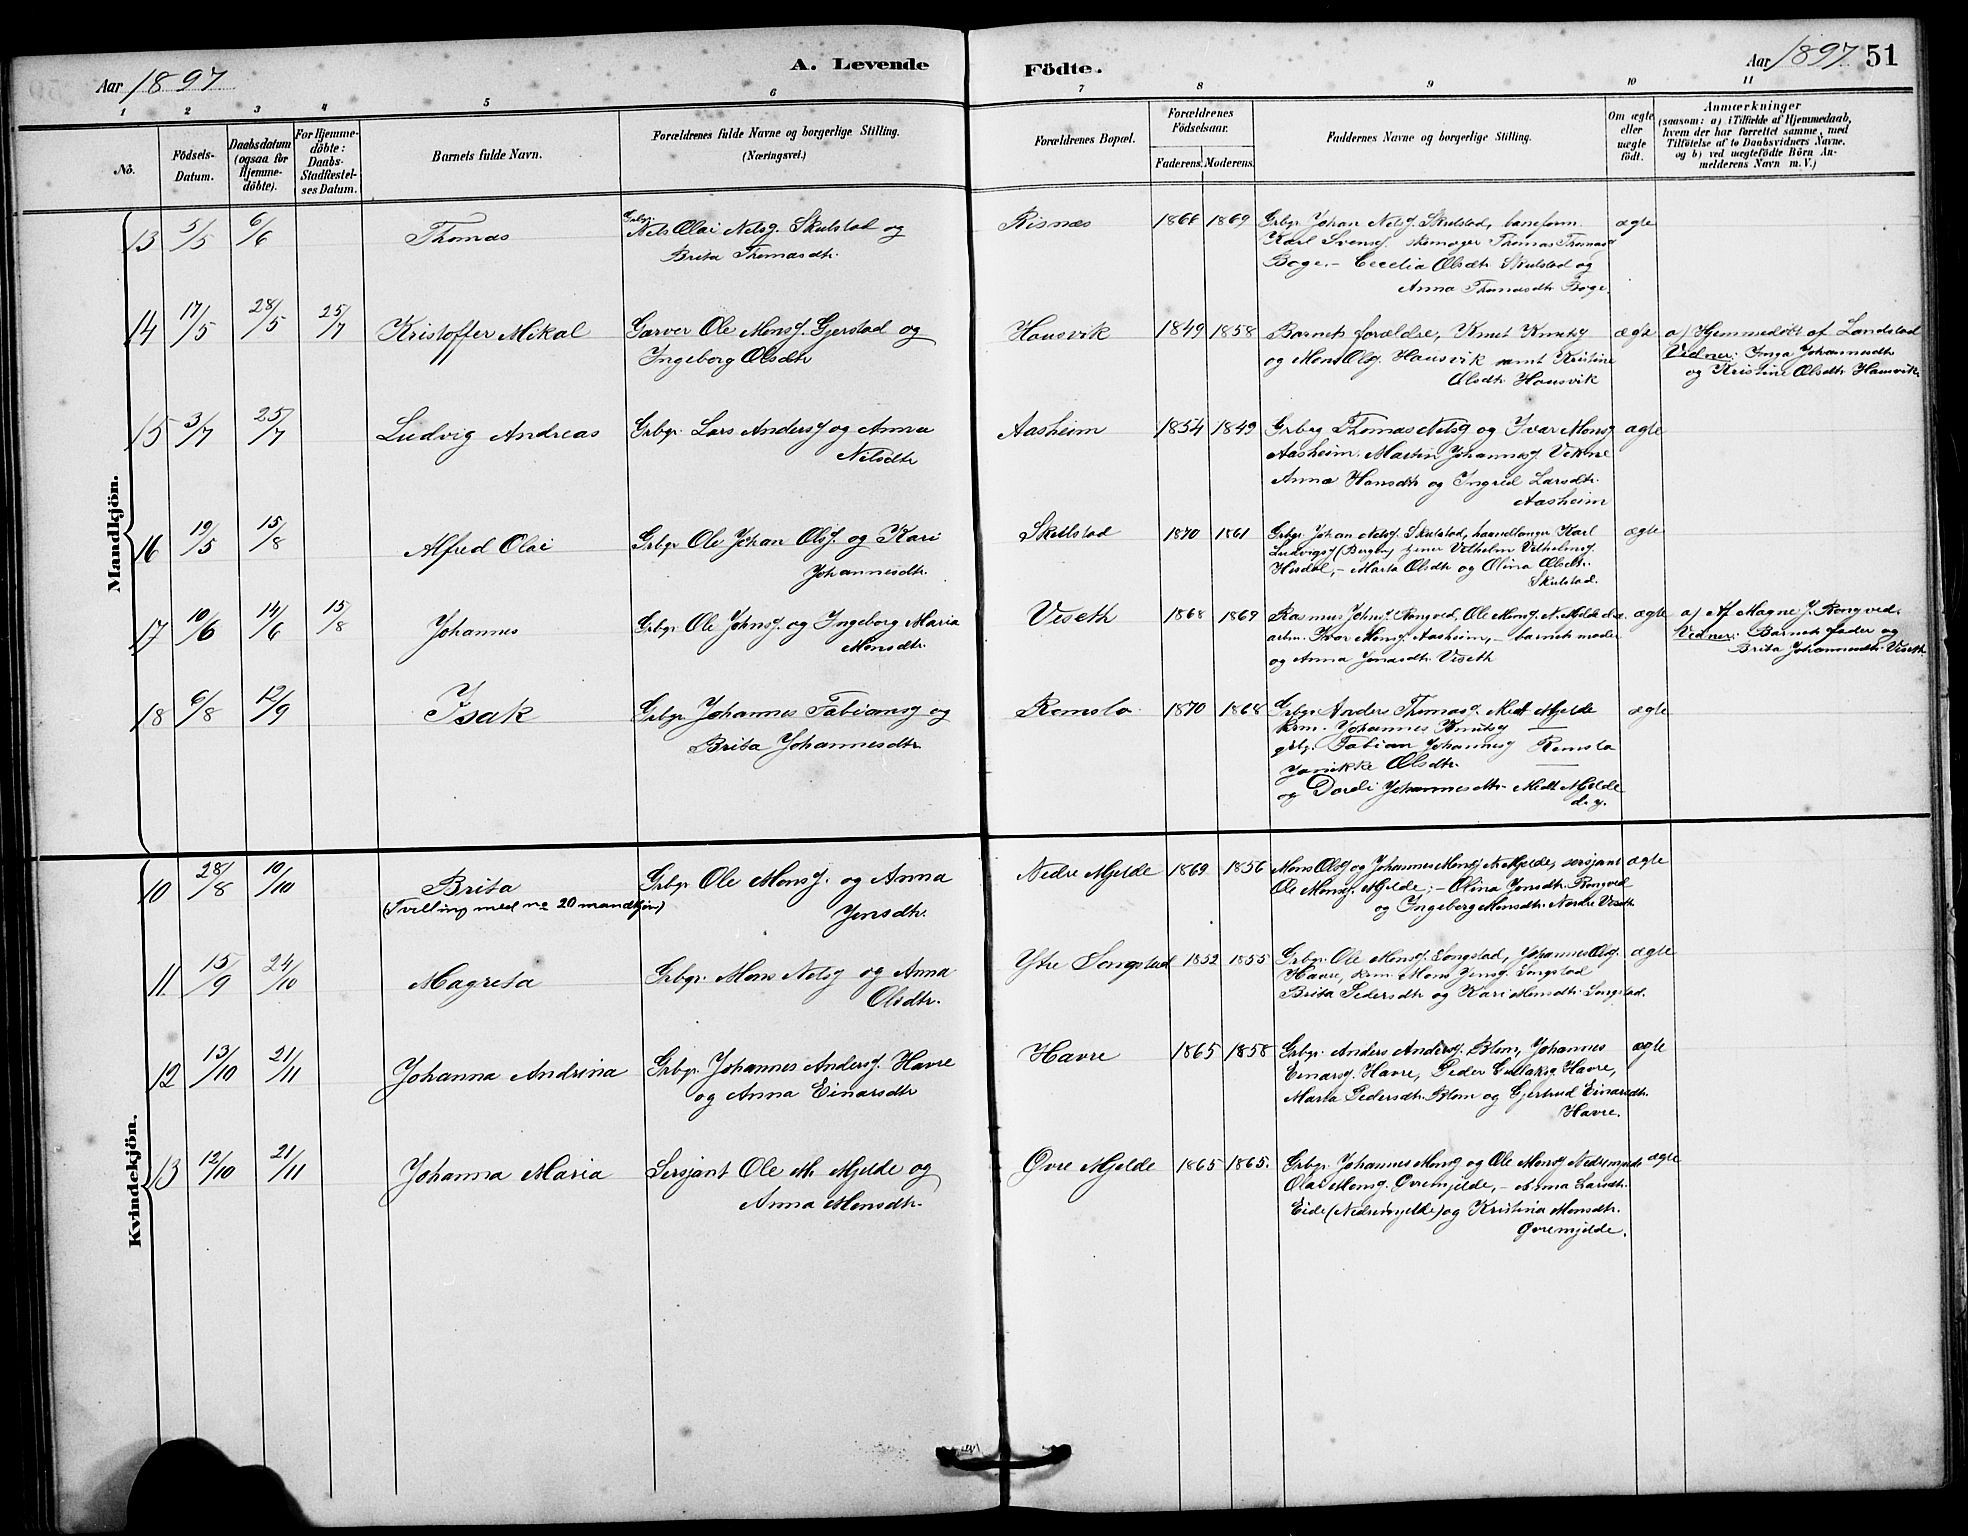 Aar 1897
A. Levende Födte.
Aar 1897 51
1 2 3 4 5 6 7 8 9 10 11
No.
Födsels-
Datum.
Daabsdatum
(ogsaa for
Hjemme-
döbte).
For Hjemme-
döbte:
Daabs-
Stadfæstel-
ses Datum.
Barnets fulde Navn.
Forældrenes fulde Navne og borgerlige Stilling.
(Næringsvei.)
Forældrenes Bopæl.
Forældrenes
Födselsaar.
Faderens. Moderens.
Faddernes Navne og borgerlige Stilling.
Om ægte
eller
uægte
født.
Anmærkninger
(saasom: a) i Tilfælde af Hjemmedaab,
hvem der har forrettet samme, med
Tilföielse af to Daabsvidners Navne,
og b) ved uægtefödte Börn An-
melderens Navn m. V.)
Mandkjön.
13 5/5 6/6 Thomas
Grbgr.
Nels Olai Nelsg. Skulstad og
Brita Thomasdtr.
Risnæs 1866 1869
Grbgr. Johan Nelsg. Skulstad, baneform.
Karl Svensg. skomager Thomas Thomasg
Boge. – Cecelia Olsdtr. Skulstad og
Anna Thomasdtr. Boge.
ægte
14 17/5 28/5 25/7 Kristoffer Mikal
Garver Ole Monsg. Gjerstad og
Ingeborg Olsdtr
Hausvik 1849 1858
Barnets forældre, Knut Knutsg
og Mons Olsg. Hausvik samt Kristine
Olsdtr. Hausvik
ægte
a) Hjemmedøbt af Landstad
Vidner: Inga Johannesdtr
og Kristine Olsdtr. Hausvik.
15 3/7 25/7 Ludvig Andreas
Grbgr. Lars Andersg og Anna
Nelsdtr
Aasheim 1854 1849
Grbrg Thomas Nelsg og Ivar Monsg
Aasheim. Martin Johannesg. Vikne
Anna Hansdtr og Ingred Larsdtr.
Aasheim
ægte
16 19/5 15/8 Alfred Olai
Grbgr Ole Johan Olsg. og Kari
Johannesdtr.
Skulstad 1870 1861
Grbgr. Johan Nelsg. Skulstad, haandlanger Karl
Ludvigsg (Bergen) Vilhelm Vilhelmsg.
Hisdal, – Marta Olsdtr og Olina Olsdtr.
Skulstad.
ægte
17 10/6 14/6 15/8 Johannes
Grbgr. Ole Johnsg. og Ingeborg Maria
Monsdtr.
Viseth 1868 1869
Rasmus Johnsg. Rongved, Ole Monsg. N. Mjelde
arbm. Ivar Monsg. Aasheim, – barnets moder
og Anna Jonasdtr. Viseth
ægte
a) Af Magne J. Rongved.
Vidner: Barnets fader og
Brita Johannesdtr. Viseth.
18 6/8 12/9 Isak
Grbgr. Johannes Fabiansg og
Brita Johannesdtr.
Romslo 1870 1868
Grbgr Anders Thomasg. Midt Mjelde
krm. Johannes Knutsg —
grbg. Fabian Johannesg Romslo
Jorikke Olsdtr. —
og Dordi Johannesdtr. Midt Mjelde
ægte
Kvindekjön.
10 28/8 10/10 Brita
(Tvilling med no 20 mandkjøn)
Grbgr. Ole Monsg. og Anna
Jensdtr.
Nedre Mjelde 1869 1856
Mons Olsg og Johannes Monsg N. Mjelde, sersjant
Ole Monsg. Mjelde; – Olina Jonsdtr. Rongved
og Ingeborg Monsdtr. Nordre Viseth
ægte
11 15/9 24/10 Magreta
Grbgr. Mons Nelsg og Anna
Olsdtr.
Ytre Songstad 1852 1855
Grbgr. Ole Monsg. Songstad, Johannes Olsg.
Havre, krm. Mons Jensg. Songstad
Brita Pedersdtr og Kari Monsdtr. Songstad.
ægte
12 13/10 21/11 Johanna Andrina
Grbgr. Johannes Andersg. Havre
og Anna Einarsdtr
Havre 1865 1858
Grbgr. Anders Andersg. Blom, Johannes
Einarsg. Havre, Peder Havre,
Marta Pedersdtr. Blom og Gjertrud Einarsdtr.
Havre.
ægte
13 12/10 21/11 Johanna Maria
Sersjant Ole M. Mjelde og
Anna Monsdtr.
Øvre Mjelde 1865 1865.
Grbgr. Johannes Monsg og Ole Monsg Nedremjelde
Olai Monsg. Øvremjelde, – Anna Larsdtr.
Eide (Nedremjelde) og Kristina Monsdtr.
Øvremjelde.
ægte